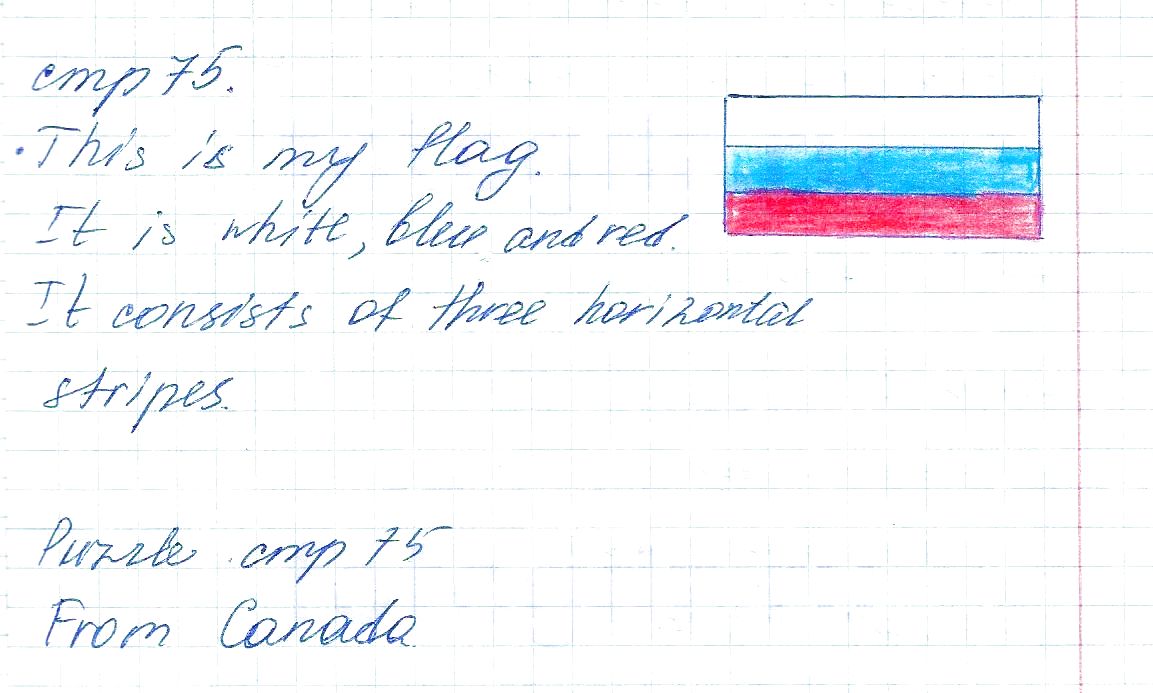 стр 75.
This is my flag.
It is white, blue and red.
It consists of three horizontal
stripes.
Puzzle стр 75
From Canada